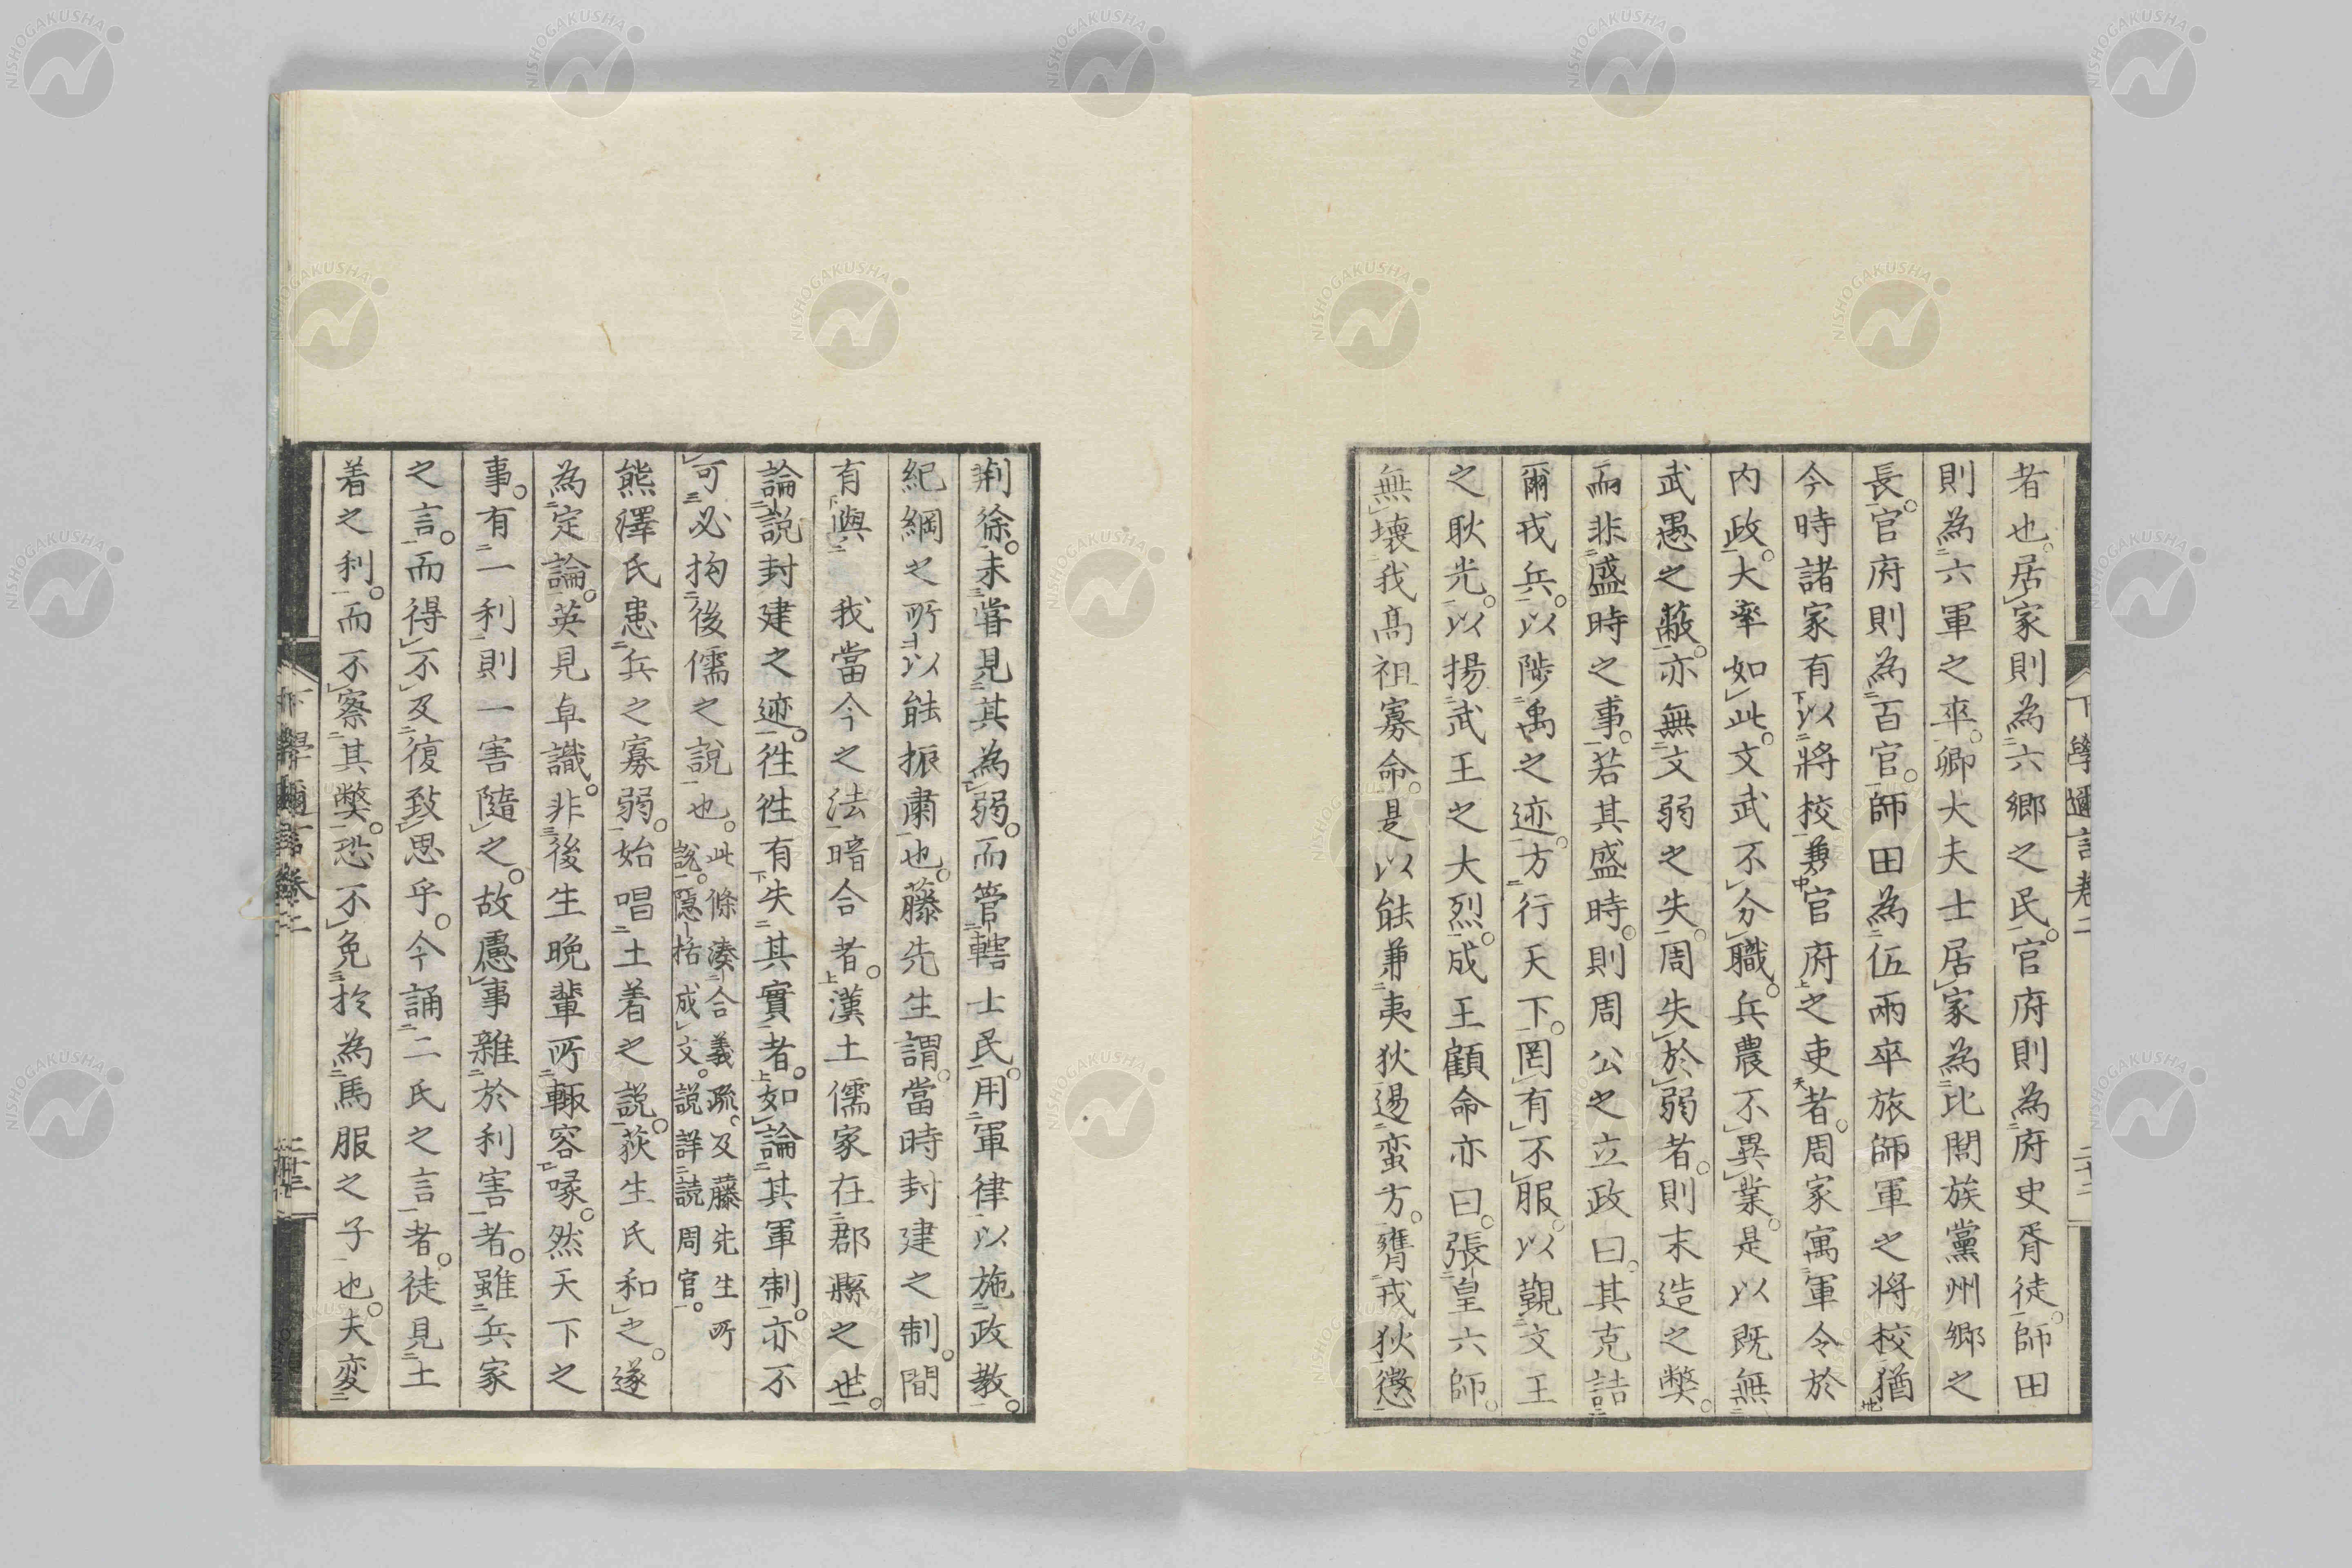 者也。居家則為六鄉之民。官府則為府史胥徒。師田
則為六軍之卒。卿大夫士居家為比閭族黨州鄉之
長。官府則為百官。師田為伍兩卒旅師軍之將校。猶
今時諸家有以將校兼官府之吏者。周家寓軍令於
内政。大率如此。文武不分職。兵農不異業。是以既無
武愚之蔽。亦無文弱之失。周失於弱者。則末造之弊。
而非盛時之事。若其盛時。則周公之立政曰。其克詰
爾戎兵。以陟禹之迹。方行天下。罔有不服。以覲文王
之耿光。以揚武王之大烈。成王顧命亦曰。張皇六師。
無壞我高祖寡命。是以能兼夷狄逷蛮方。膺戎狄懲
下學邇言卷二
二十二
荆徐。未甞見其為弱。而管轄士民。用軍律以施政教。
紀綱之所以能振肅也。藤先生謂。當時封建之制。間
有與 我當今之法暗合者。漢土儒家在郡縣之世。
論説封建之迹。徃徃有失其實者。如論其軍制。亦不
可必拘後儒之說也。此條湊合義疏。及藤先生所
說。隱括成文。説詳読周官。
熊澤氏患兵之寡弱。始唱土着之説。荻生氏和之。遂
為定論。英見卓識。非後生晚輩所輙容喙。然天下之
事。有一利則一害隨之。故慮事雜於利害者。雖兵家
之言。而得不及復致思乎。今誦二氏之言者。徒見土
着之利。而不察其弊。恐不免於為馬服之子也。夫変
NISHOGAKUSHA